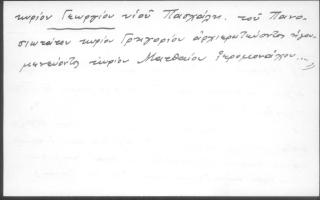 κυρίου Γεωργίου υἱοῦ Πασχάλη. τοῦ Πανο-
σιωτάτου κυρίου Γρηγορίου ἀρχιερατεύοντος ἡγου-
μενεύοντος κυρίου Ματθαίου ἱερομονάχου...